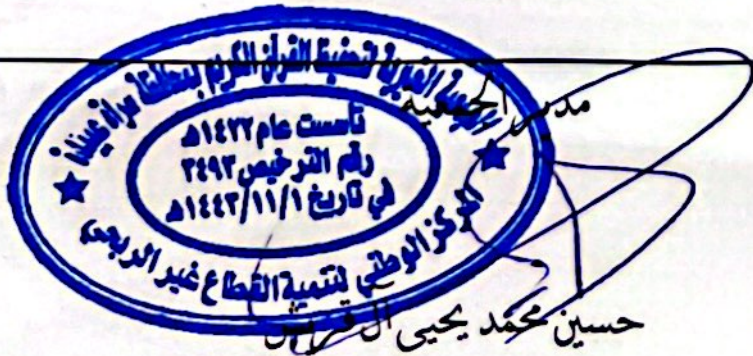 الجمعية الخيرية لتحفيظ القرآن الكريم بمحافظة سراة عبيدة
مدير الجمعية
تأسست عام ١٤٢٢هـ
رقم الترخيص ٣٤٩٣
في تاريخ ١٤٤٣/١١/١هـ
المركز الوطني لتنمية القطاع غير الربحي
حسين محمد يحيى آل قريش